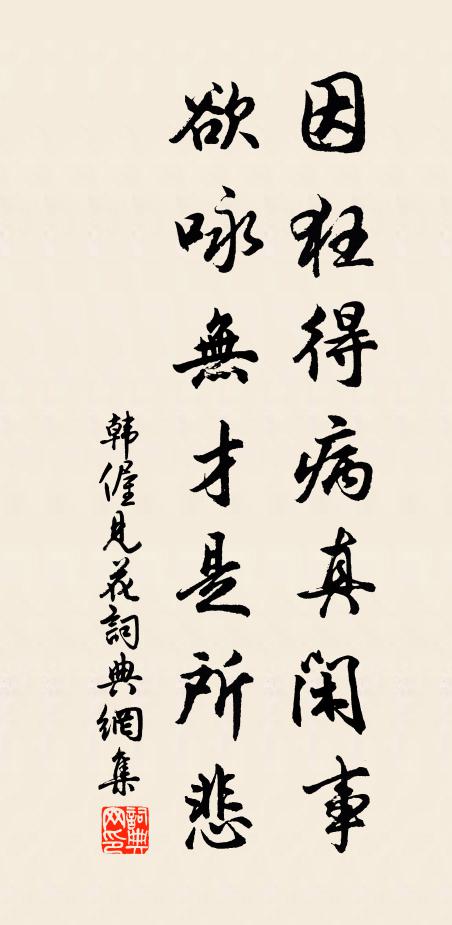 因狂得病真閑事
欲咏無才是所悲
韩偓見花詞典網集
詞典网印